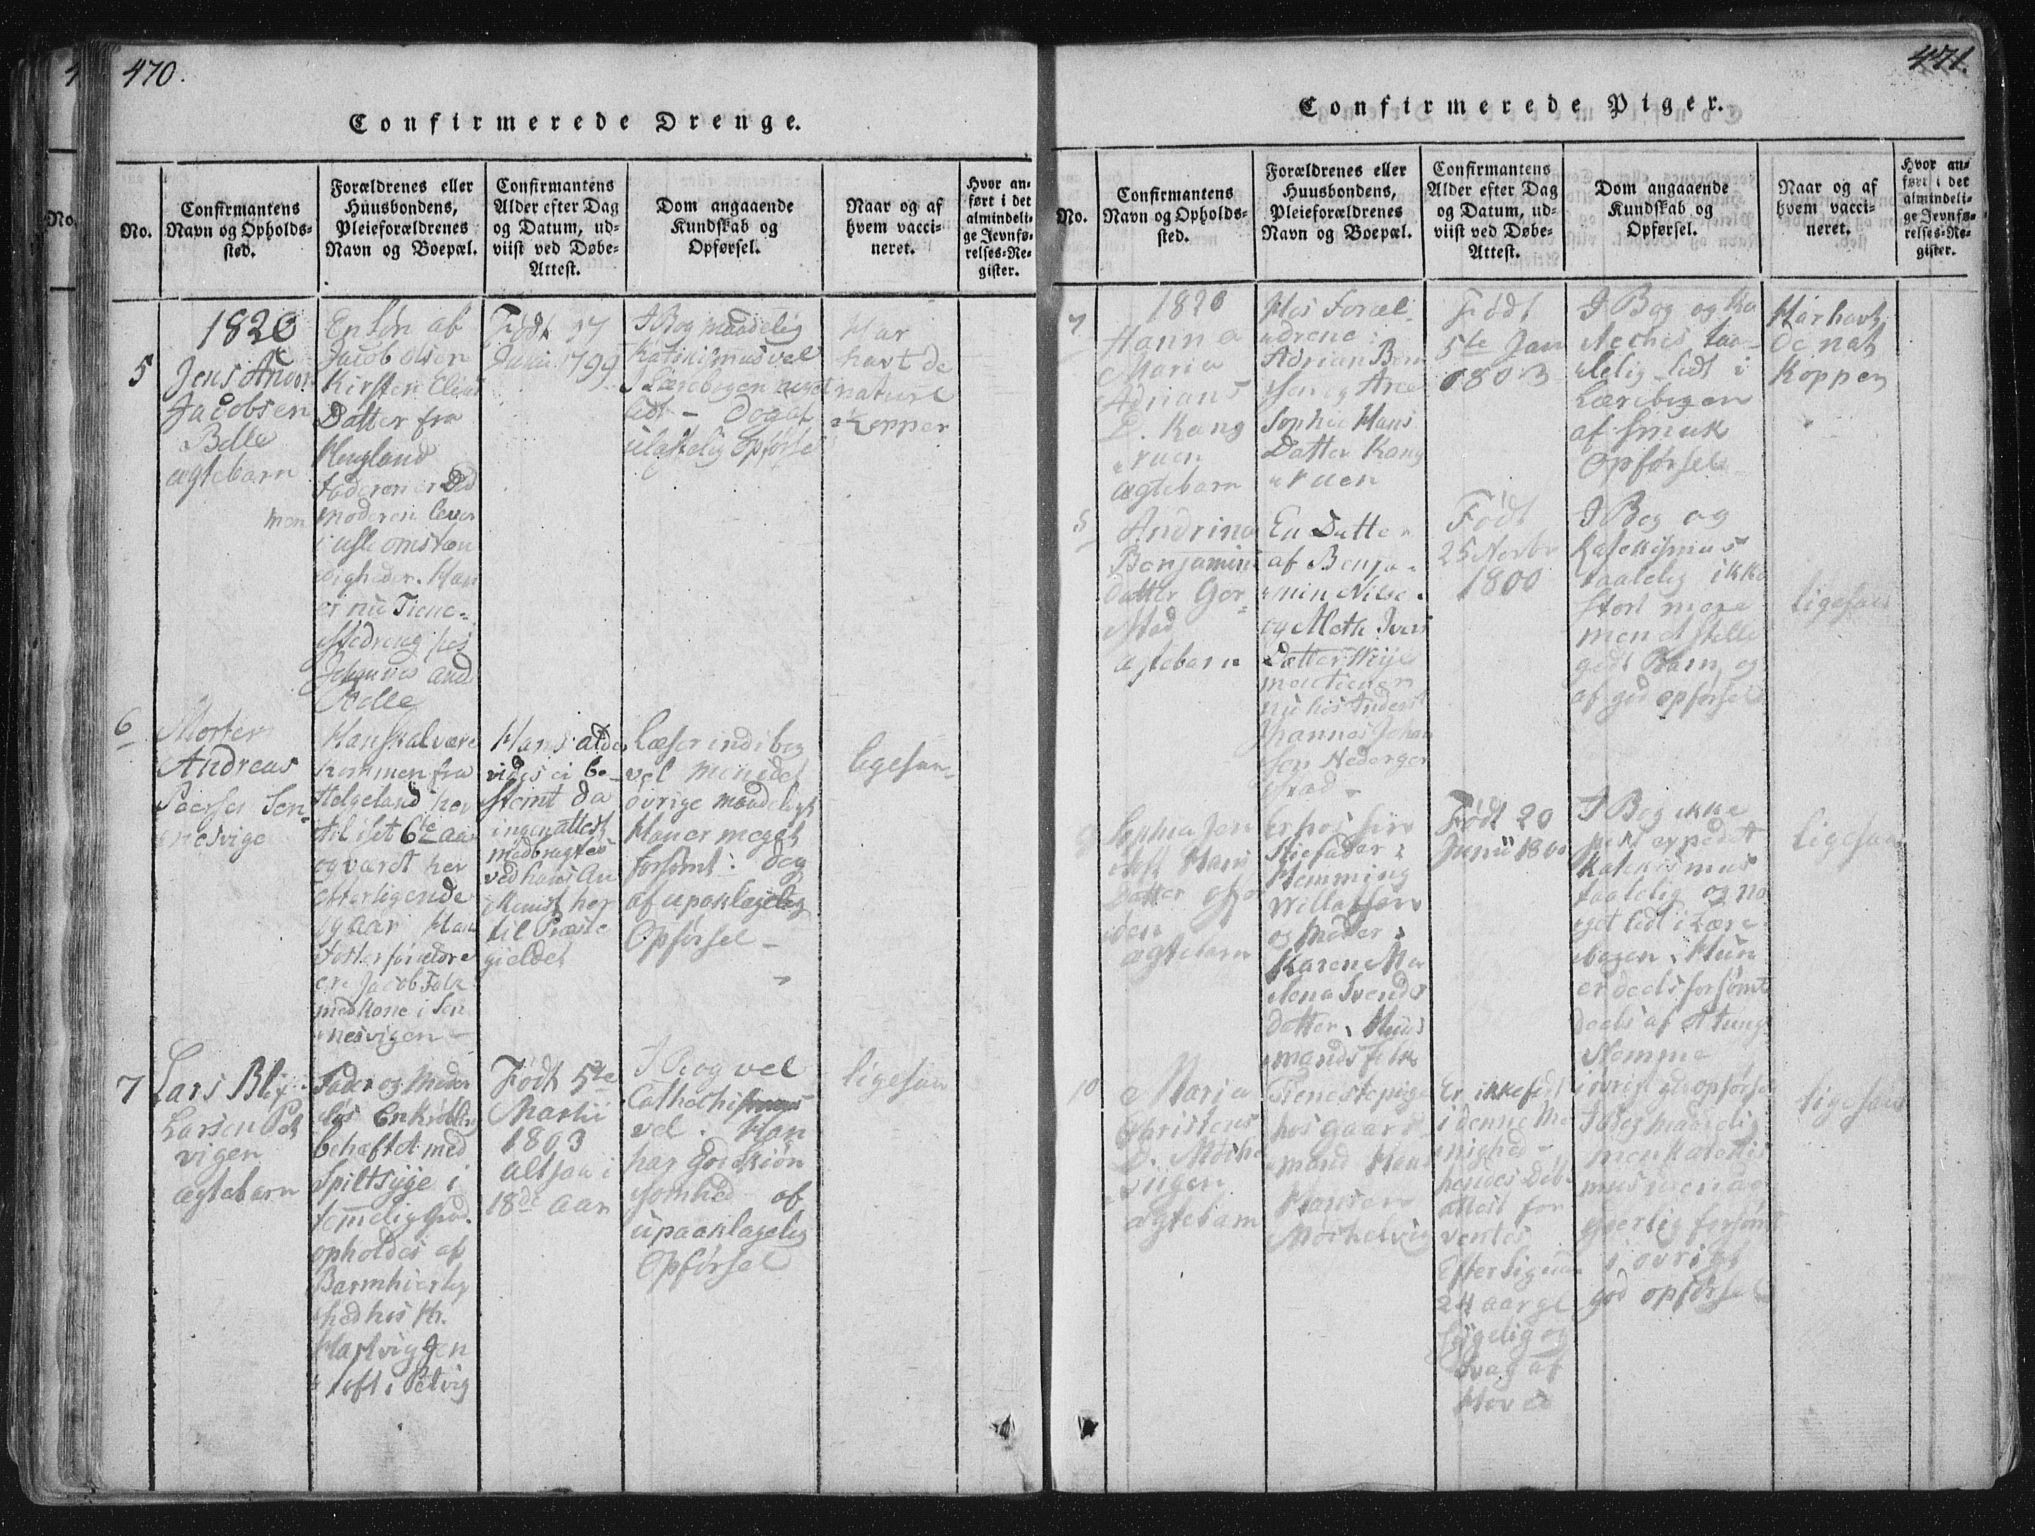 470.
Confirmerede Drenge.
No.
Confirmantens
Navn og Opholds-
sted.
Forældrenes eller
Huusbondens,
Pleieforældrenes
Navn og Boepæl.
Confirmantens
Alder efter Dag
og Datum, ud-
viist ved Døbe-
Attest.
Dom angaaende
Kundskab og
Opførsel.
Naar og af
hvem vacci-
neret.
Hvor an-
ført i det
almindeli-
ge Jevnfø-
relses-Re-
gister.
1820
5
Jens
Jacobsen
Belle
ægtebarn
En Søn af
Jacob Olsen
Kirsten
Datter fra
Helgland
Faderen er Død
men moderen lever
i usle omstæn
digheder. Han
er nu Tiene-
stedreng hos
Johannes And
Belle
Født 17
Junii 1799
I Bog maadelig
Katekismus vel
I Lærebogen meget
lidt - Dog af
ulastelig Opførsel
Har
havt de
naturl
Kopper
6
Morten
Andreas
Peersen Sen-
nesvigen
Han skal være
kommen fra
Helgeland her
til i set 6te aar
og været her
efterligende
9 aar Hans
fosterforældre
ere Jacob Falk
med Kone i Sen
nesvigen -
Hans alder
vides ei be-
stemt da
ingen attest
medbragtes
ved hans An
komst her
til Præste
gieldet
Læser indi bog
vel men i det
øvrige maadeligt
Han er meget
forsømt: dog
af upaaklagelig
Opførsel -
ligesaa -
7
Lars Blix
Larsen Pet
vigen
ægtebarn
Fader og Moder
løs En Krøbling
behæftet med
Spiltsyge i
temmelig Grad.
opholdes af
Barmhiertig
hed hos Hr.
Hartviggsen
Toft i Petvig
Født 5te
Martii
1803
altsaa i
18de aar
I Bog vel
Cathechismus
vel. Han
har god Skiøn
somhed af
upaaklagelig
Opførsel
ligesaa
471.
Confirmerede Piger.
No.
Confirmantens
Navn og Opholds-
sted.
Forældrenes eller
Huusbondens,
Pleieforældrenes
Navn og Boepæl.
Confirmantens
Alder efter Dag
og Datum, ud-
viist ved Døbe-
Attest.
Dom angaaende
Kundskab og
Opførsel.
Naar og af
hvem vacci-
neret.
Hvor an-
ført i det
almindeli-
ge Jevnfø-
relses-Re-
gister.
1820
7
Hanna
Maria
Adrians
D. Kang
ruen
ægtebarn
Hos Foræl-
drene:
Adrian Ben
Sophie Hans
Datter Kang
ruen
Født
5te Jan
1803
I Bog og Ka
techis taa-
lelig lidt i
Lærebogen
af smuk
Opførsel
Har havt
de nat
Kopper
Andrina
Benjamins
datter Ger-
stad
ægtebarn
En Datter
af Benja-
min Nilsen
og Meth Ivers
Datter
men tiener
nu hos Anders
Johannes Johan
sen Nederger
stad -
Født
25 Novbr
1800
I Bog og
Katekismus
taalelig ikke
stort mere
men et stille
godt Barn og
af god opførsel
ligesaa
Hans
Datter
ægtebarn
Er hos sin
Stiefader:
Flemming
Willatsen
og Moder:
Karen Ma
lena Svends
datter. Huus
mands folk
Født 20
Junii 1800
I Bog ikke
Katekismus
taalelig og no
get lidt i Lære
bogen. Hun
er deels forsømt
deels af et tungt
Nemme
i øvrigt god opførsel
ligesaa
10
Maria
Christens
D. Mørke
vigen
ægtebarn
Tienestepige
hos gaard-
mand Hans
Hansen
Mørkelvig
Er ikke født
i denne Me
nighed -
hendes Døbe
attest for
ventes
Efter sigende
24 aar gl
Sygelig og
Svag af
Hoved
I bog maadelig
men Kateks
mus men ad
yderlig forsømt
i øvrigt
god opførsel
ligesaa